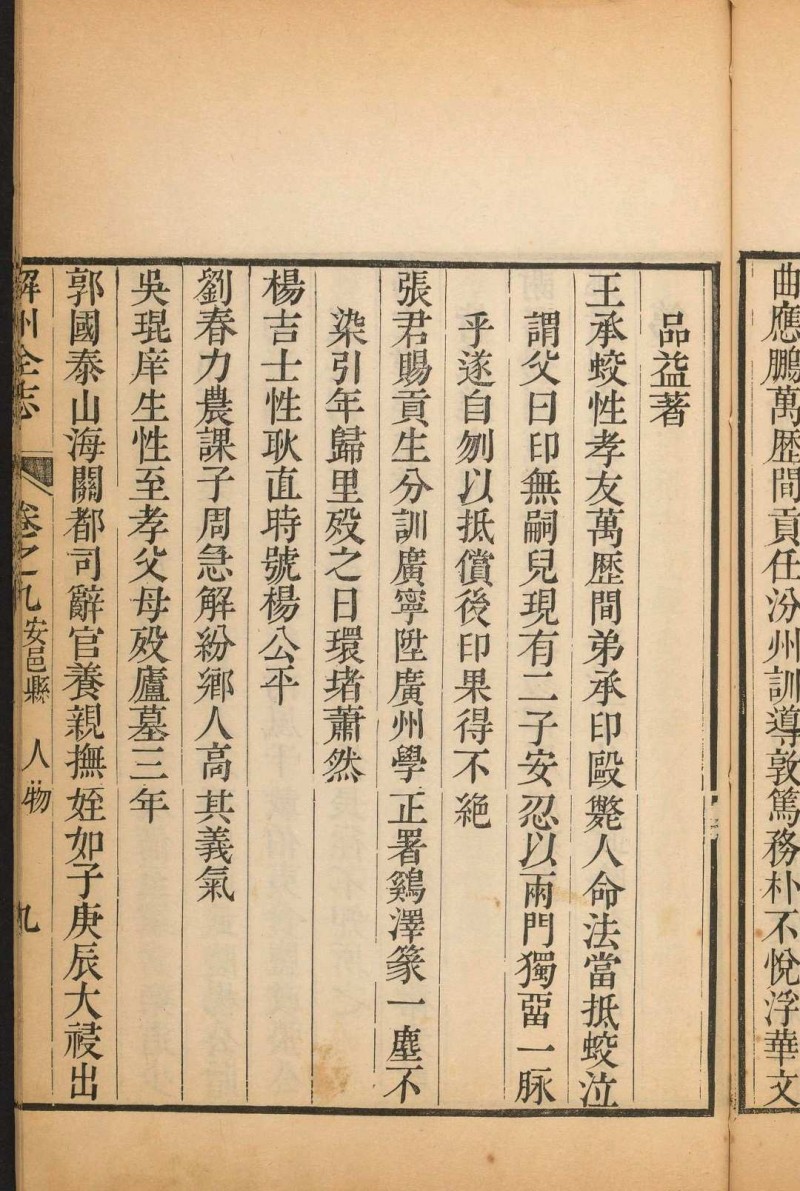 曲應鵬萬歷間貢任汾州訓導敦篤務朴不悅浮華文
品益著
王承蛟性孝友萬歷間弟承印毆斃人命法當抵蛟泣
謂父曰印無嗣兒現有二子安忍以兩門獨畱一脉
乎遂自刎以抵償後印果得不絶
張君賜貢生分訓廣寧陞廣州學正署鷄澤篆一塵不
染引年歸里殁之日環堵蕭然
楊吉士性耿直時號楊公平
劉春力農課子周急解紛鄉人高其義氣
吳琨庠生性至孝父母殁廬墓三年
郭國泰山海關都司辭官養親撫姪如子庚辰大祲出
解州全志 卷之九安邑縣 人物 九